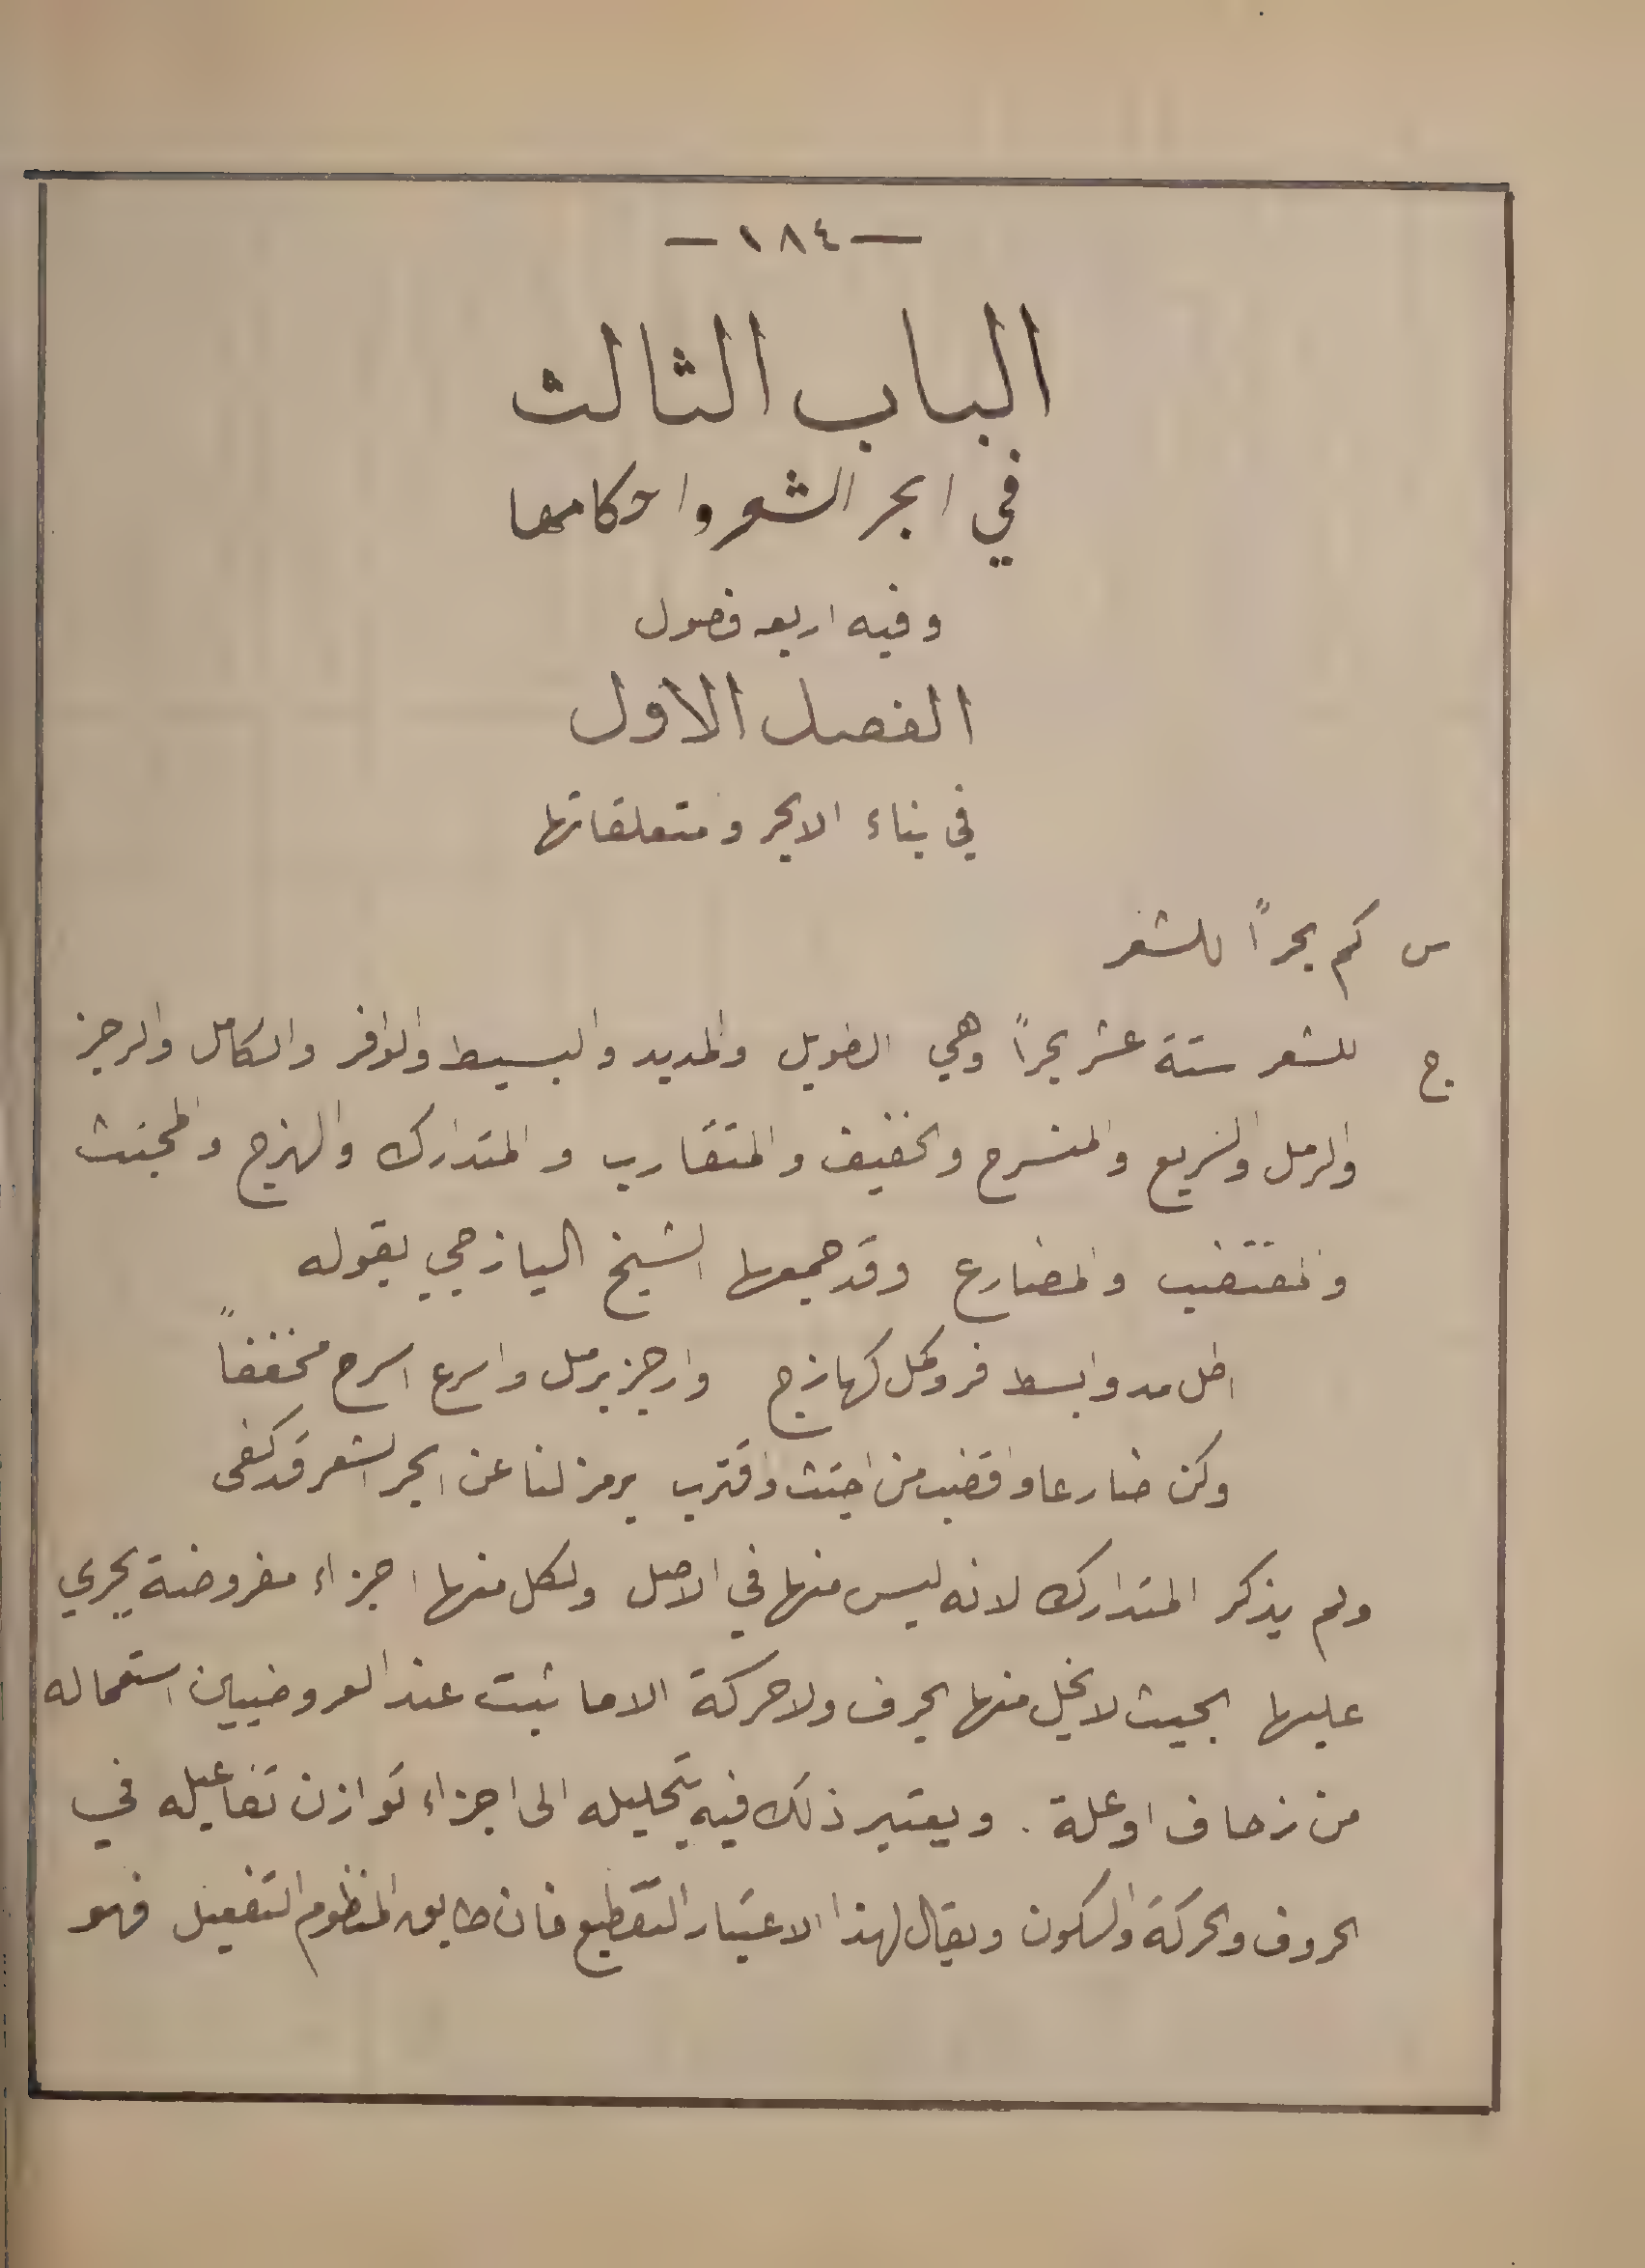 — ١٨٤ —
الباب الثالث
في ابحر الشعر واحكامها
وفيه اربعه فصول
الفصل الاول
في بناء الابحر ومتعلقاتها
س كم بحراً للشعر
ج للشعر ستة عشر بحراً وهي الطويل والمديد والبسيط والوافر والكامل والرجز
والرمل والسريع والمنسرح والخفيف والمتقارب والمتدارك والهزج والمجتث
والمقتضب والمضارع وقد جمعها الشيخ اليازجي بقوله
اطل مد وابسط فر وكمل كهازج وارجز برمل واسرع اسرح مخففاً
وكن ضارعا واقضب من اجتث واقترب برمز لنا عن ابحر الشعر قد كفى
ولم يذكر المتدارك لانه ليس منها في الاصل ولكل منها اجزاء مفروضة يجري
عليها بحيث لا يخل منها بحرف ولا حركة الا ما ثبت عند العروضيين استعماله
من زحاف او علة . ويعتبر ذلك فيه بتحليله الى اجزاء توازن تفاعيله في
الحروف والحركة والسكون ويقال لهذا الاعتبار التقطيع فان طابق المنظوم التفعيل فهو